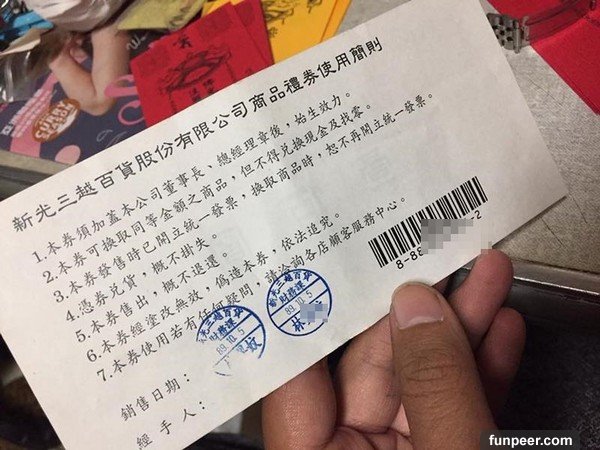 新光三越百貨股份有限公司商品禮券使用簡則
1.本券須加蓋本公司董事長、總經理章後，始生效力。
2.本券可換取同等金額之商品，但不得兌換現金及找零。
3.本券發售時已開立統一發票，換取商品時，恕不再開立統一發票。
4.憑券兌貨，概不掛失。
5.本券售出，概不退還。
6.本券經塗改無效，偽造本券，依法追究。
7.本券使用若有任何疑問，請洽詢各店顧客服務中心。
銷售日期：
經手人：
新光三越百貨
財務課
89.10.5
新光三越百貨
財務課
89.10.5
林
8-88
-2
funpeer.com